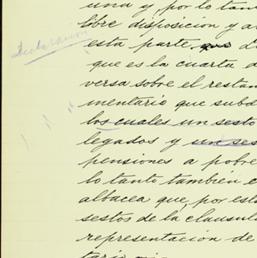 una y por lo tan
libre disposicion y a
Declaracion
esta parte, que d
que es la cuarta d
versa sobre el restan
mentario que subs
los cuales un sesto
legados y un ses
pensiones a pobre
lo tanto también e
albacea que, por est
sestos de la clausul
representacion de